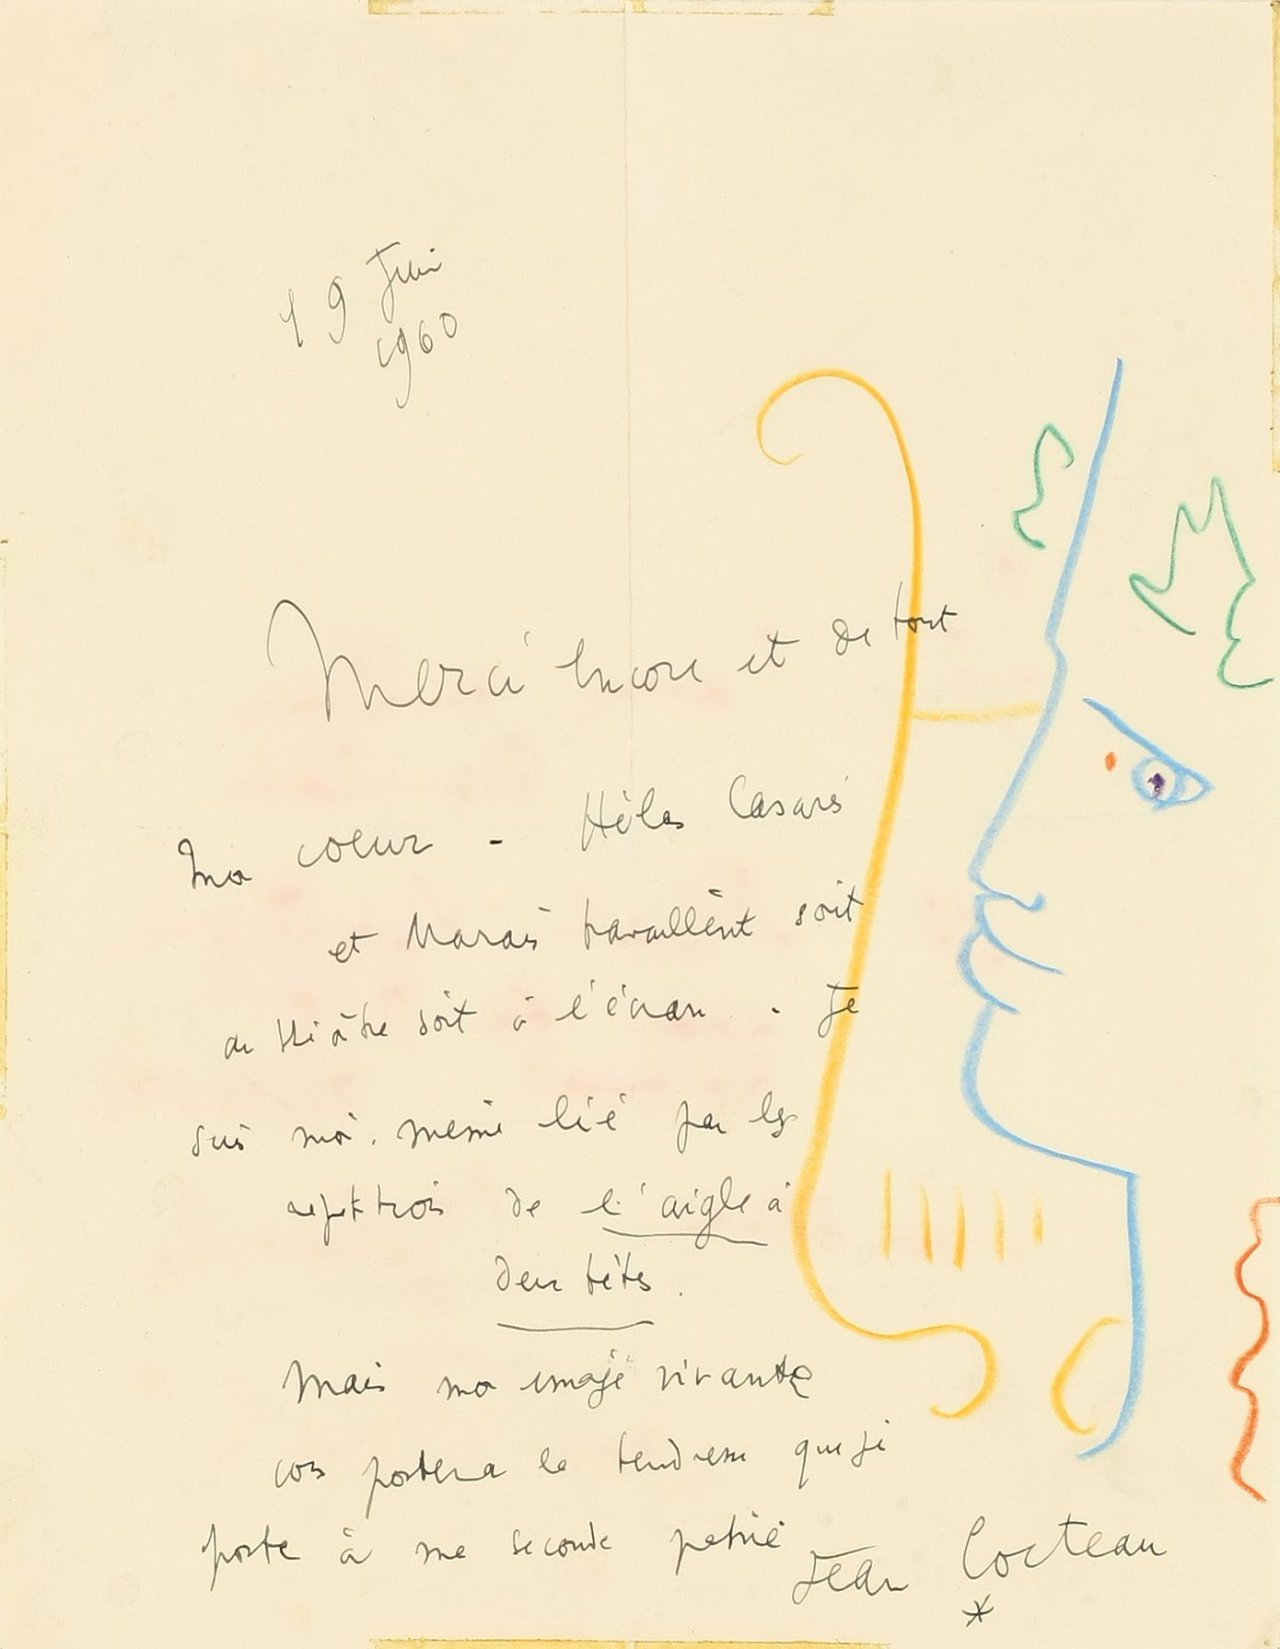 19 Juin
1960
Merci encore et de tout
mon coeur - Hélas Casarès
et Marais travaillent soit
au théâtre soit à l'écran. Je
suis moi-même lié par les
répétitions de l'aigle à
deux têtes.
Mais mon image vivante
vous portera la tendresse que je
porte à ma seconde patrie
Jean Cocteau
*